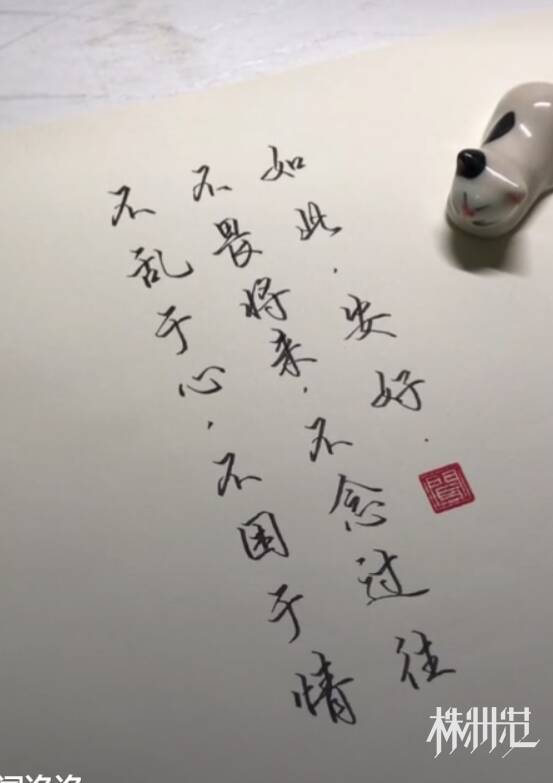 不乱于心，不困于情
不畏将来，不念过往
如此，安好．
株洲范